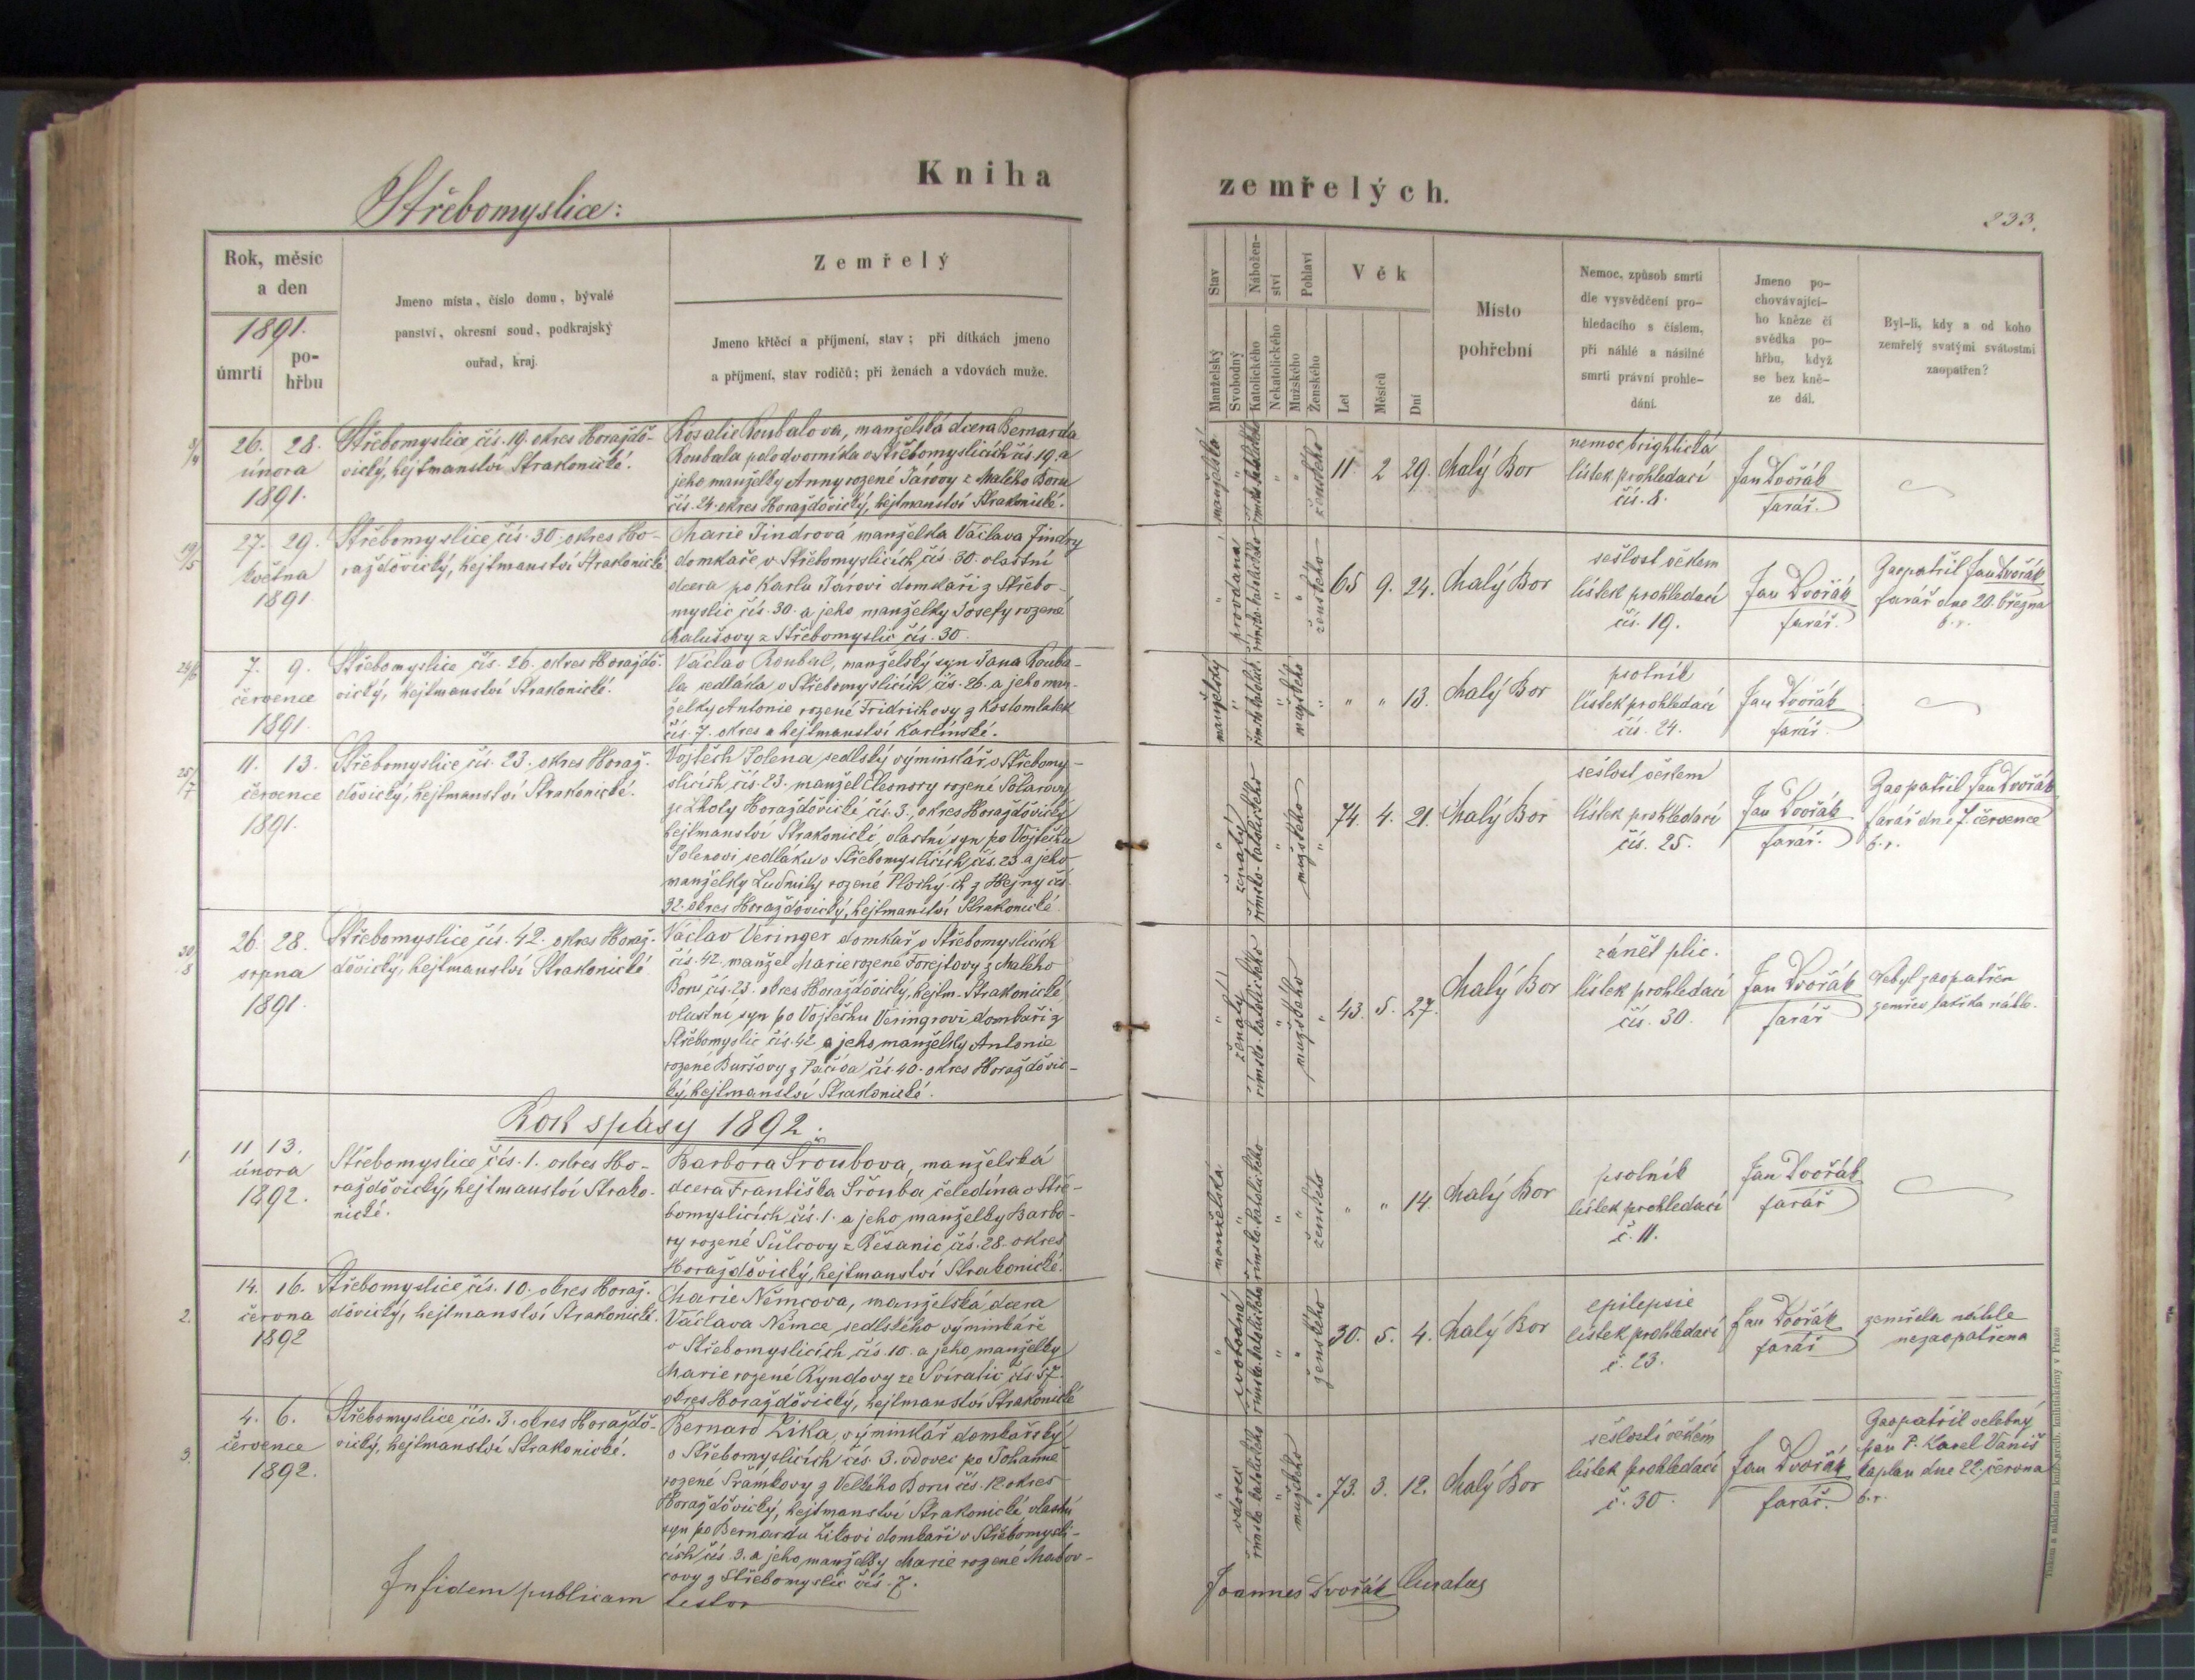 Kniha
Střebomyslice:
Rok, měsíc
a den
1891.
úmrtí
po-
hřbu
Jmeno místa, číslo domu, bývalé
panství, okresní soud, podkrajský
ouřad, kraj.
Zemřelý
Jmeno křtěcí a příjmení, stav; při dítkách jmeno
a příjmení, stav rodičů; při ženách a vdovách muže.
3/4
26. 28.
února
1891.
Střebomyslice čís. 19. okres Horažďo-
vický, hejtmanství Strakonické.
Rosalie Roubalova, manželská dcera Bernarda
Roubala polodvorníka v Střebomyslicích čís 19, a
jeho manželky Anny rozené Járovy z Malého Boru
čís. 24. okres Horažďovický, hejtmanství Strakonické.
19/5
27. 29.
května
1891
Střebomyslice čís. 30. okres Ho-
ražďovický, hejtmanství Strakonické
Marie Jindrová manželka Václava Jindry
domkaře v Střebomyslicích čís. 30. vlastní
dcera po Karlu Járovi domkaři z Střebo-
myslic čís. 30. a jeho manželky Josefy rozené
Malušovy z Střebomyslic čís. 30.
24/6
7. 9.
července
1891.
Střebomyslice čís. 26. okres Horažďo-
vický, hejtmanství Strakonické.
Václav Roubal, manželský syn Jana Rouba-
la sedláka v Střebomyslicích čís. 26. a jeho man-
želky Antonie rozené Fridrichovy z Kostomlatek
čís. 7. okres a hejtmanství Karlínské.
25/7
11. 13.
července
1891.
Střebomyslice čís. 23. okres Horaž-
ďovický, hejtmanství Strakonické.
Vojtěch Polena sedlský výminkář v Střebomy-
slicích čís. 23. manžel Eleonory rozené Solarovy
ze Lhoty Horažďovické čís. 3., okres Horažďovický
hejtmanství Strakonické, vlastní syn po Vojtěchu
Polenovi sedláku v Střebomyslicích čís. 23. a jeho
manželky Ludmily rozené Plochý-ch z Hejny čís
32. okres Horažďovický, hejtmanství Strakonické
30/8
26. 28.
srpna
1891.
Střebomyslice čís. 42. okres Horaž-
ďovický, hejtmanství Strakonické
Václav Veringer domkář v Střebomyslicích
čís. 42. manžel Marie rozené Forejtovy z Malého
Boru čís. 23. okres Horažďovický, hejtm. Strakonické,
vlastní syn po Vojtěchu Veringrovi domkaři z
Střebomyslic čís. 42. a jeho manželky Antonie
rozené Buršovy z Pačiva čís 40. okres Horažďovic-
ký, hejtmanství Strakonické.
Rok spásy 1892.
1.
11 13.
února
1892.
Střebomyslice čís. 1. okres Ho-
ražďovický, hejtmanství Strako-
nické.
Barbora Šroubova, manželská
dcera Františka Šrouba čeledína v Stře-
bomyslicích čís. 1. a jeho manželky Barbo-
ry rozené Šulcovy z Řešanic čís. 28. okres
Horažďovický, hejtmanství Strakonické.
2.
14. 16.
června
1892
Střebomyslice čís. 10. okres Horaž-
ďovický, hejtmanství Strakonické.
Marie Němcova, manželská dcera
Václava Němce sedlského výminkáře
v Střebomyslicích čís. 10. a jeho manželky
Marie rozené Ryndovy ze Sviratic čís. 57.
okres Horažďovický, hejtmanství Strakonické
3.
4. 6.
července
1892.
Střebomyslice čís. 3. okres Horažďo-
vický, hejtmanství Strakonické.
Bernard Zika, výminkář domkářský
v Střebomyslicích čís. 3. vdovec po Johanně
rozené Šrámkovy z Velkého Boru čís. 12. okres
Horažďovický, hejtmanství Strakonické, vlastní
syn po Bernardu Zikovi domkaři v Střebomysli-
cích čís. 3. a jeho manželky Marie rozené
z Střebomyslic čís. 7.
In fidem publicam testor
zemřelých.
233.
Stav
Manželský
Svobodný
Nábožen-
ství
Katolického
Nekatolického
Pohlaví
Mužského
Ženského
Věk
Let
Měsíců
Dní
Místo
pohřební
Nemoc, způsob smrti
dle vysvědčení pro-
hledacího s číslem,
při náhlé a násilné
smrti právní prohle-
dání.
Jmeno po-
chovávající-
ho kněze či
svědka po-
hřbu, když
se bez kně-
ze dál.
Byl-li, kdy a od koho
zemřelý svatými svátostmi
zaopatřen?
manželská " římsko-katolického " " ženského
11. 2 29. Malý Bor
nemoc brightická
lístek prohledací
čís. 8.
Jan Dvořák
farář.
" provdaná římsko-katolického " " ženského
65 9. 24. Malý Bor
sešlost věkem
lístek prohledací
čís. 19.
Jan Dvořák
farář.
Zaopatřil Jan Dvořák
farář dne 20. března
b.r.
manželský " římsko-katolick. " mužského "
" " 13. Malý Bor
psotník
lístek prohledací
čís. 24.
Jan Dvořák
farář.
" ženatý římsko-katolického " mužského "
74. 4. 21. Malý Bor
sešlost věkem
lístek prohledací
čís. 25.
Jan Dvořák
farář.
Zaopatřil Jan Dvořák
farář dne 7. července
b.r.
" ženatý římsko-katolického " mužského "
43. 5. 27. Malý Bor
zánět plic.
lístek prohledací
čís. 30.
Jan Dvořák
farář
Nebyl zaopatřen
náhle.
manželská " římsko-katolického " " ženského
" " 14. Malý Bor
psotník
lístek prohledací
č. 11.
Jan Dvořák
farář
" svobodná římsko-katolického " " ženského
30. 5. 4. Malý Bor
epilepsie
lístek prohledací
č. 23.
Jan Dvořák
farář
zemřela náhle
nezaopatřena
" vdovec římsko-katolického " mužského "
73. 3. 12. Malý Bor
sešlostí věkem
lístek prohledací
č. 30.
Jan Dvořák
farář.
Zaopatřil velebný
pán P. Karel Vaniš
kaplan dne 22. června
b.r.
Joannes Dvořák Curatus
Tiskem a nákladem knížecí arcib. knihtiskárny v Praze